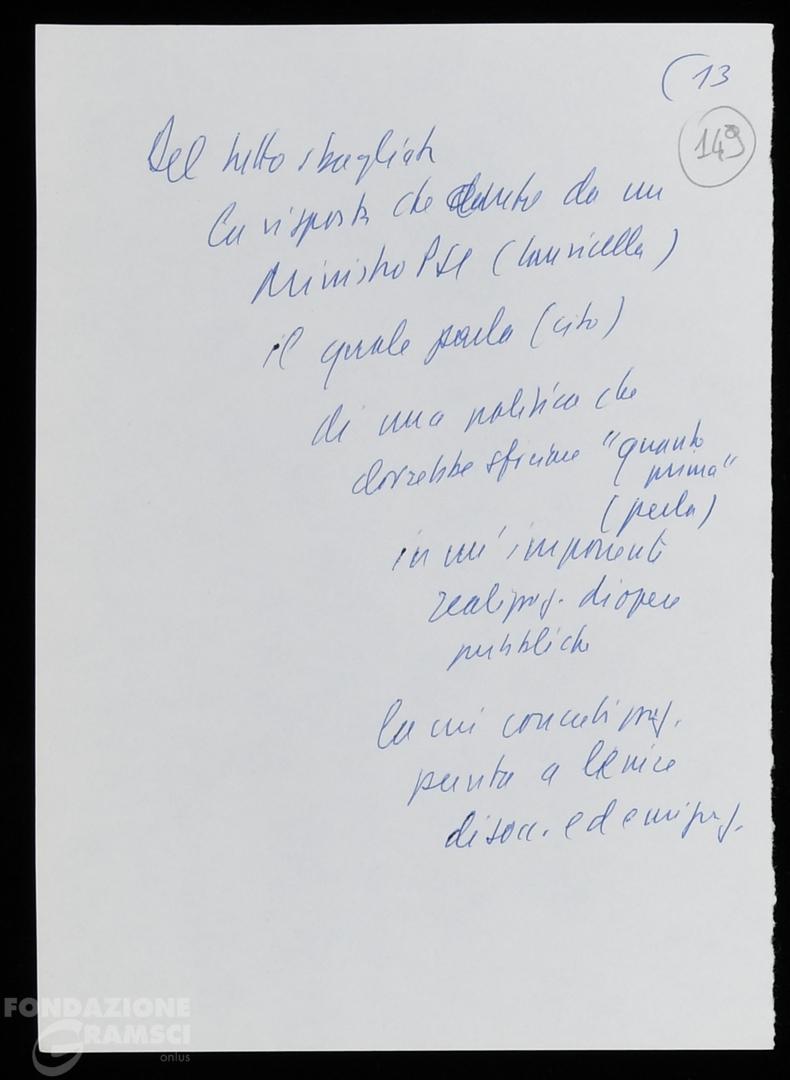 (13
149
Del tutto sbagliata
la risposta che data da un
Ministro PSI (Lauricella)
il quale parla (cito)
di una politica che
dovrebbe sfociare "quanto
prima"
(perla)
in un' imponente
realizzaz. di opere
pubbliche
la cui concretizzaz.
punta a lenire
disocc. ed emigraz.
FONDAZIONE
GRAMSCI
onlus